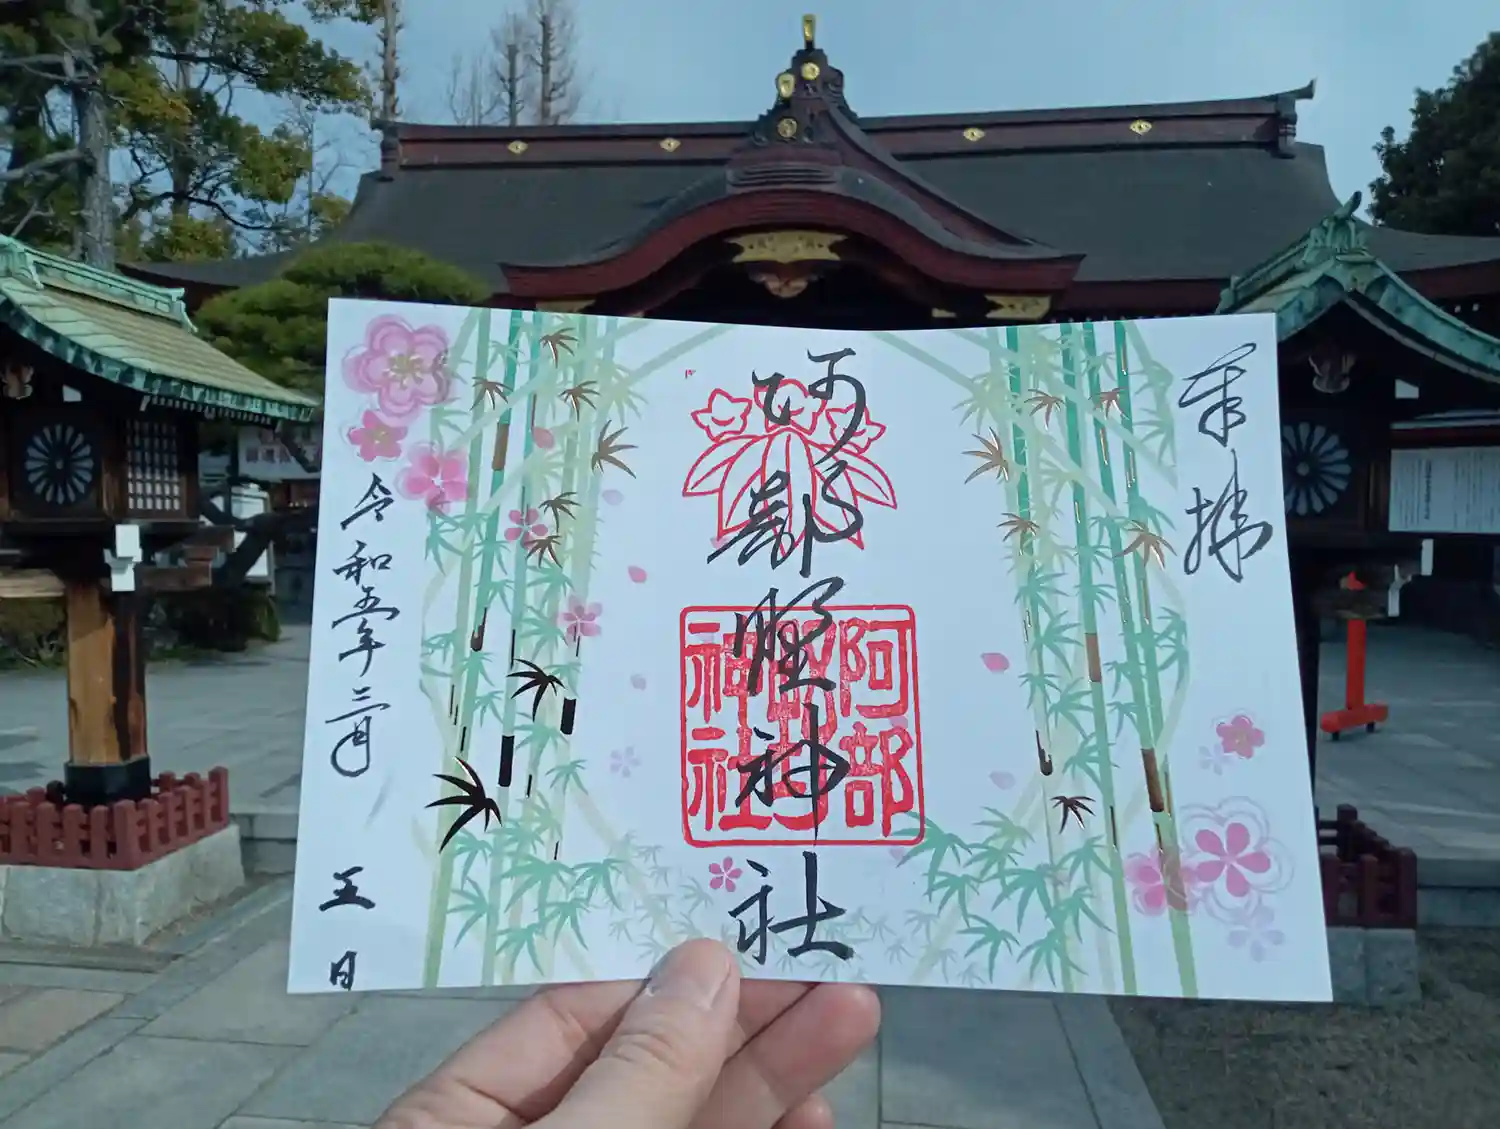 奉拝
阿部野神社
阿部
神社
令和五年三月五日